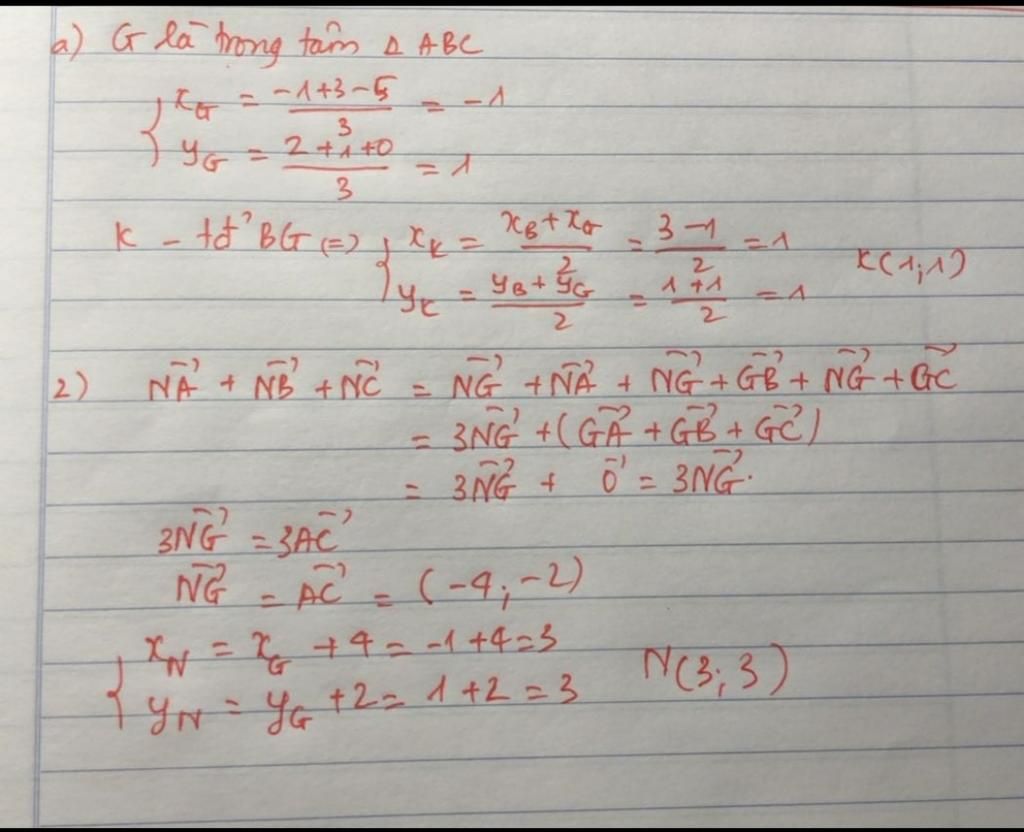 a) G là trọng tâm Δ ABC
{ x_G = (-1+3-5)/3 = -1
y_G = (2+1+0)/3 = 1
K - tđ BG (=) { x_K = (x_B+x_G)/2 = (3-1)/2 = 1
y_K = (y_B+y_G)/2 = (1+1)/2 = 1 K(1;1)
2) NA⃗ + NB⃗ + NC⃗ = NG⃗ + NA⃗ + NG⃗ + GB⃗ + NG⃗ + GC⃗
= 3NG⃗ + (GA⃗ + GB⃗ + GC⃗)
= 3NG⃗ + 0⃗ = 3NG⃗.
3NG⃗ = 3AC⃗
NG⃗ = AC⃗ = (-4;-2)
{ x_N = x_G + 4 = -1+4=3
y_N = y_G +2= 1+2 = 3 N(3;3)